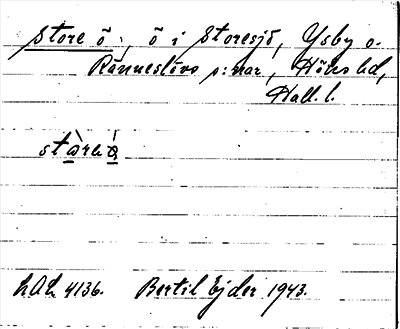 Store ö, ö i Storesjö, Ysby o.
Ränneslövs s:nar, Höks hd,
Hall. l.
stàre á̱
LAL 4136. Bertil Ejder 1943.